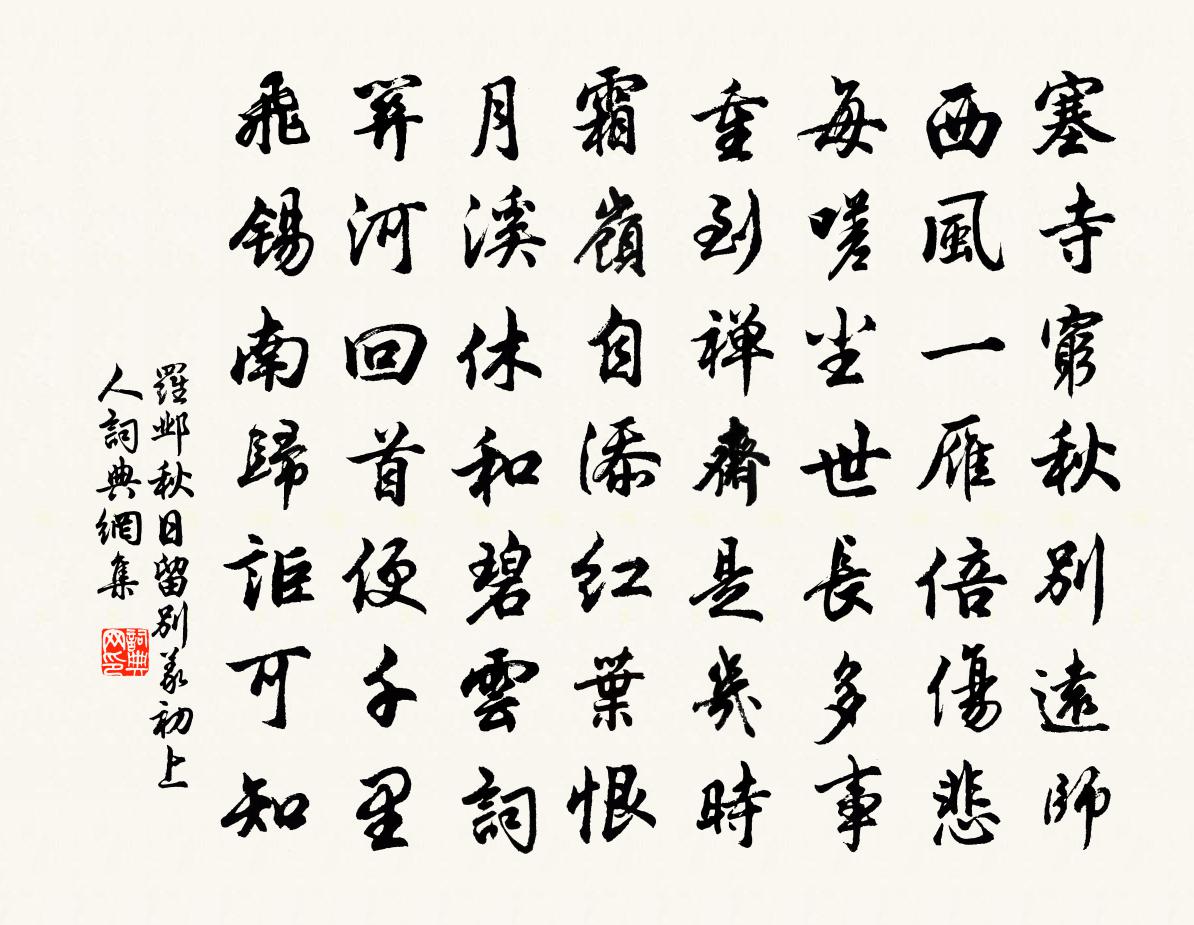 塞寺窮秋別遠師
西風一雁倍傷悲
每嗟尘世長多事
重到禅齋是幾時
霜嶺自添紅葉恨
月溪休和碧雲詞
關河回首便千里
飛錫南歸詎可知
羅邺秋日留別義初上
人詞典網集
詞典
网印